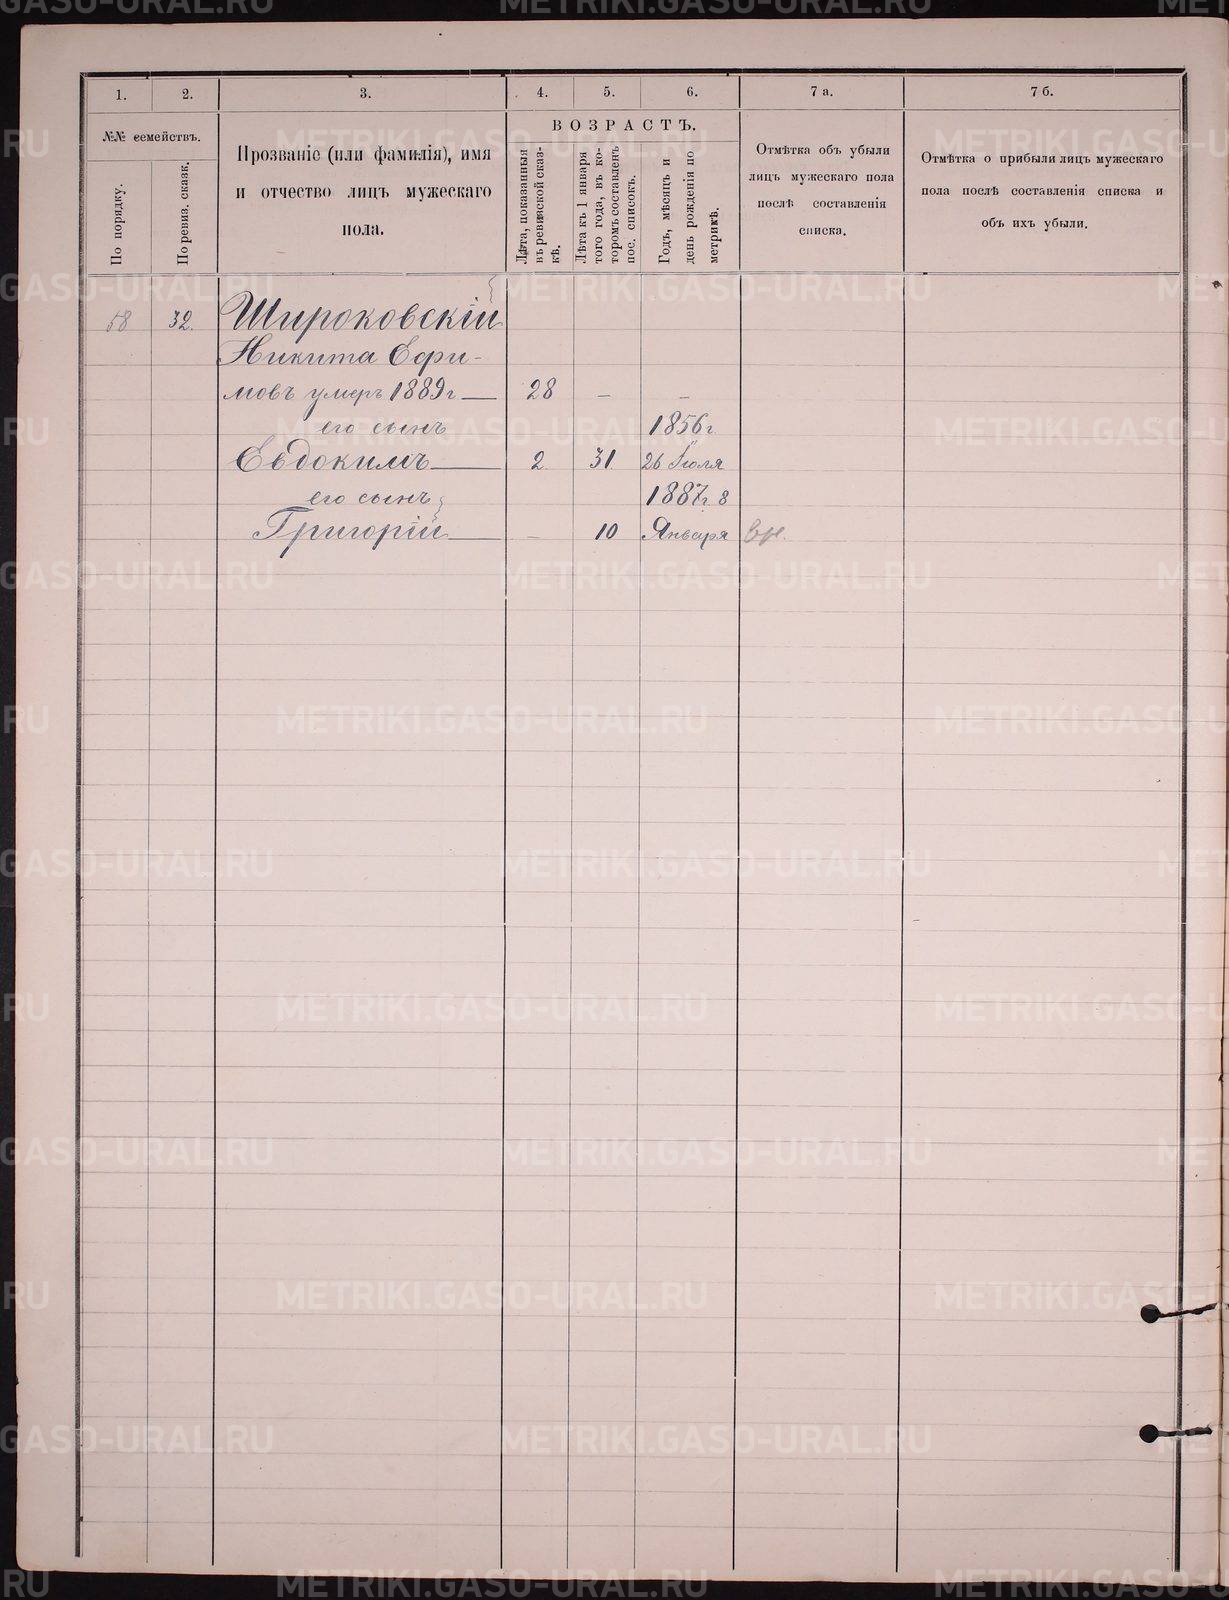 1.
2.
3.
4.
5.
6.
7 а.
7 б.
№№ семействъ.
По порядку.
По ревиз. сказк.
Прозваніе (или фамилія), имя
и отчество лицъ мужескаго
пола.
ВОЗРАСТЪ.
Лѣта, показанныя
въ ревизской сказ-
кѣ.
Лѣта къ 1 января
того года, въ ко-
торомъ составленъ
пос. списокъ.
Годъ, мѣсяцъ и
день рожденія по
метрикѣ.
Отмѣтка объ убыли
лицъ мужескаго пола
послѣ составленія
списка.
Отмѣтка о прибыли лицъ мужескаго
пола послѣ составленія списка и
объ ихъ убыли.
58 32. Широковскій
Никита Ефи-
мовъ умеръ 1889г — 28 — —
его сынъ 1856г
Евдокимъ — 2 31 26 Іюля
его сынъ 1887г. 8
Григорій — — 10 Января
METRIKI.GASO-URAL.RU